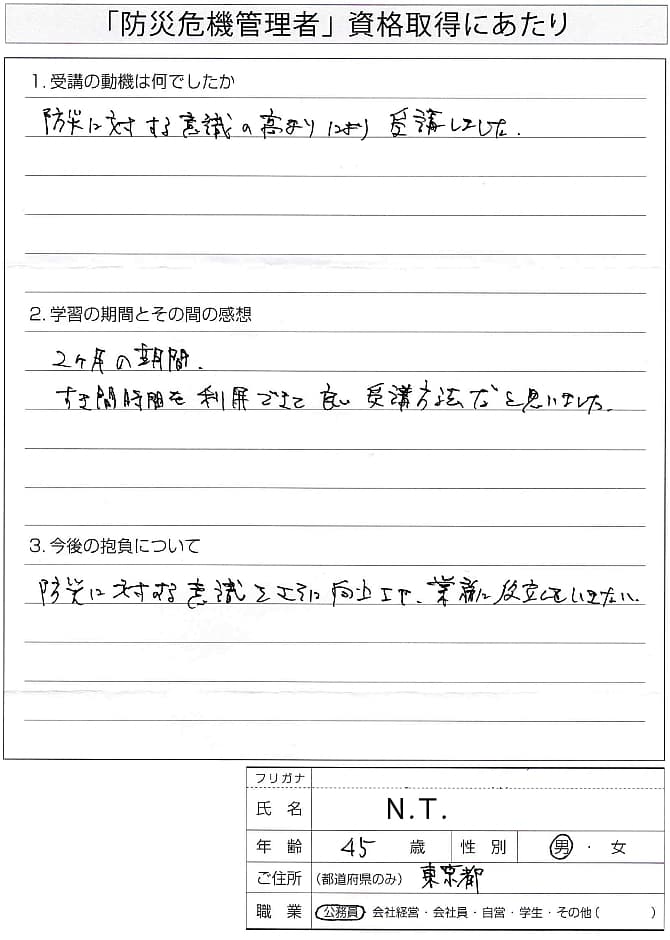 「防災危機管理者」資格取得にあたり
1.受講の動機は何でしたか
防災に対する意識の高まりにより 受講しました.
2.学習の期間とその間の感想
2ヶ月の期間.
すき間時間を 利用できて 良い 受講方法だと思いました.
3.今後の抱負について
防災に対する意識をさらに向上させ、業務に役立てていきたい.
フリガナ
氏 名 N.T.
年 齢 45 歳 性 別 男 ・ 女
ご住所 (都道府県のみ) 東京都
職 業 公務員・会社経営・会社員・自営・学生・その他( )